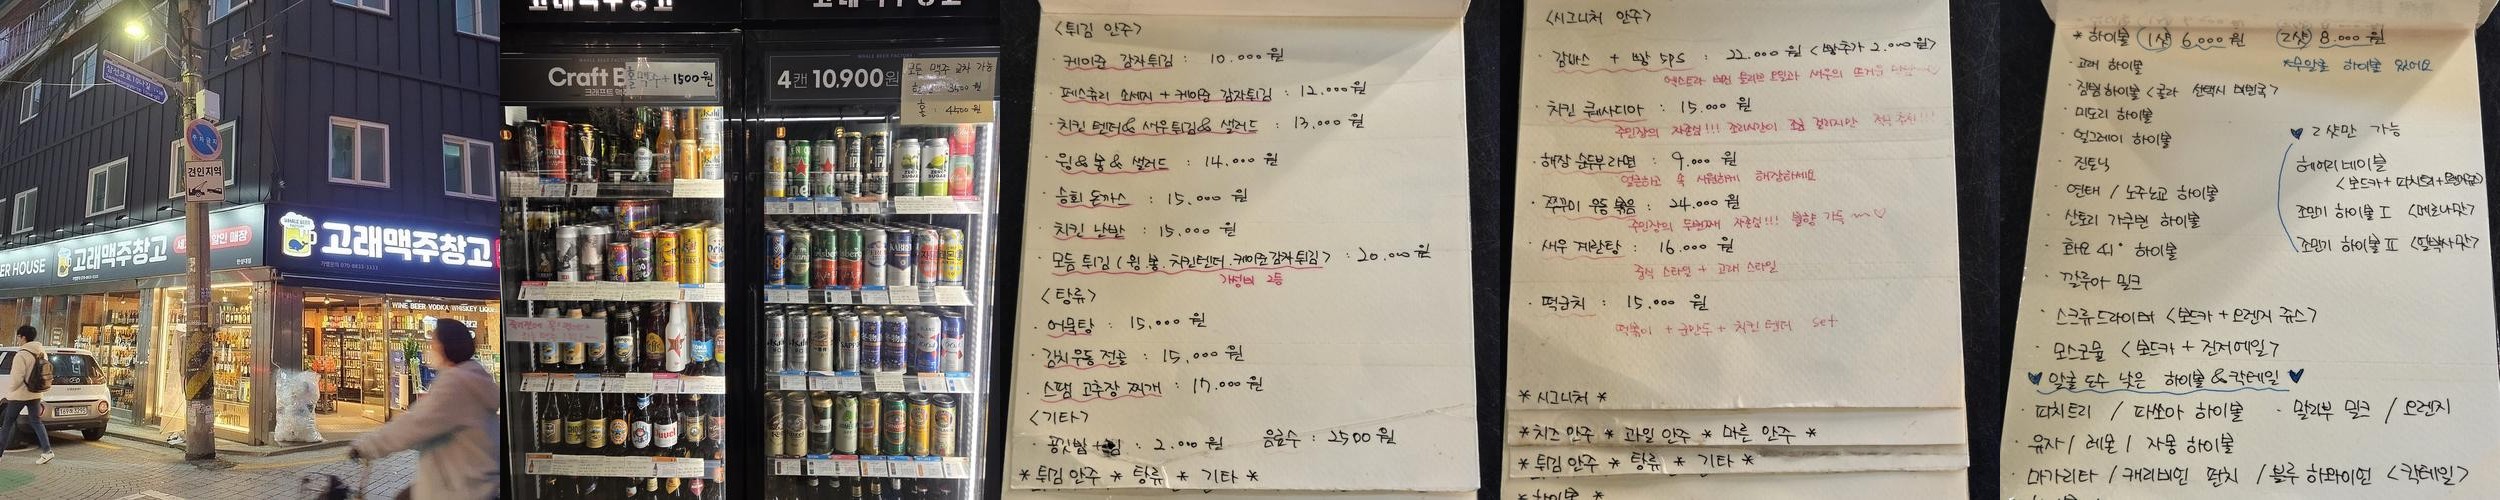 삼선교로10나길
주차금지
견인지역
ER HOUSE
고래맥주창고
세계
할인 매장
한성대점
WHALE BEER
고래맥주창고
가맹문의 070-8833-3333
WINE BEER VODKA WHISKEY LIQU
고래맥주창고
고래맥주창고
WHALE BEER FACTORY
Craft B
크래프트 맥
홀 맥주 + 1500원
WHALE BEER FACTORY
4캔 10,900원
모든 맥주 교차 가능
홀 : 4500원
<튀김 안주>
· 케이준 감자튀김 : 10.000원
· 페스츄리 소세지 + 케이준 감자튀김 : 12.000원
· 치킨텐더 & 새우튀김 & 샐러드 : 13.000원
· 윙 & 봉 & 샐러드 : 14.000원
· 승회 돈까스 : 15.000원
· 치킨 난반 : 15.000원
· 모듬 튀김 (윙 봉. 치킨텐더. 케이준감자튀김) : 20.000원
가성비 2등
<탕류>
· 어묵탕 : 15.000원
· 김치우동 전골 : 15.000원
· 스팸 고추장 찌개 : 17.000원
<기타>
· 공깃밥 + 김 : 2.000원 음료수 : 2500원
* 튀김 안주 * 탕류 * 기타 *
<시그니처 안주>
· 감바스 + 빵 5ps : 22.000원 <빵추가 2.000원>
· 치킨 퀘사디아 : 15.000원
주인장의 자존심!!! 조리시간이 조금 걸리지만
· 해장 순두부라면 : 9.000원
얼큰하고 속 시원하게 해장하세요
· 쭈꾸미 우동 볶음 : 24.000원
주인장의 두번째 자존심!!! 불향 가득 ~♡
· 새우 계란탕 : 16.000원
중식 스타일 + 고래 스타일
· 떡군치 : 15.000원
떡볶이 + 군만두 + 치킨텐더 set
* 시그니처 *
* 치즈 안주 * 과일 안주 * 마른 안주 *
* 튀김 안주 * 탕류 * 기타 *
* 하이볼 *
* 하이볼 1샷 6.000원 2샷 8.000원
* 무알콜 하이볼 있어요
· 고래 하이볼
· 짐빔하이볼 <콜라 선택시 버번콕>
· 미도리 하이볼
· 얼그레이 하이볼
· 진토닉
· 연태 / 노주노교 하이볼
· 산토리 가쿠빈 하이볼
· 화요 41° 하이볼
· 깔루아 밀크
· 스크류드라이버 <보드카 + 오렌지 쥬스>
· 모스코뮬 <보드카 + 진저에일>
♥ 2샷만 가능
조민기 하이볼 I <메로나맛>
조민기 하이볼 II
♥ 알콜 도수 낮은 하이볼 & 칵테일 ♥
· 피치트리 / 파쏘아 하이볼 · 말리부 밀크 / 오렌지
· 유자 / 레몬 / 자몽 하이볼
· 마가리타 / 캐리비안 펀치 / 블루 하와이언 <칵테일>